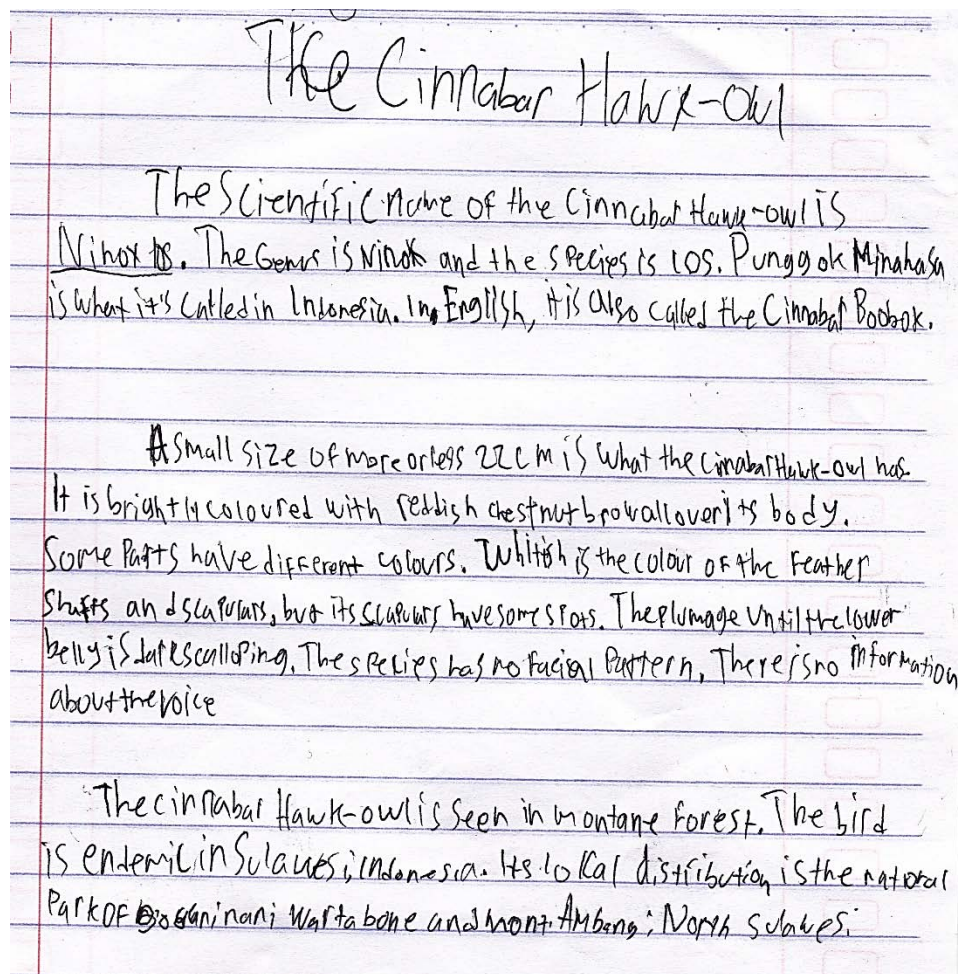 The Cinnabar Hawk-Owl
The Scientific name of the Cinnabar Hawk-owl is
Ninox ios. The Genus is Ninok and the species is ios. Punggok Minahasa
is what it's called in Indonesia. In English, it is also called the Cinnabar Boobok.
A small size of more or less 22cm is what the Cinabar Hawk-owl has.
It is brightly coloured with reddish chestnut brow all over its body.
Some Parts have different colours. Whitish is the colour of the Feather
Shafts and scapulars, but its scapulars have some spots. The plumage until the lower
belly is dark scalloping. The species has no facial Pattern, There is no information
about the voice
The cinnabar Hawk-owl is seen in montane forest. The bird
is endemic in Sulawesi, Indonesia. Its lokal distribution is the national
Park of Bogani nani Wartabone and mont. Ambang; North Sulawesi.